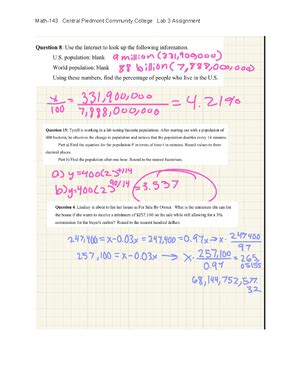 Math-143 Central Piedmont Community College Lab 3 Assignment
Question 8: Use the Internet to look up the following information.
U.S. population: blank a million (331,900,000)
World population: blank 88 billion (7,888,000,000)
Using these numbers, find the percentage of people who live in the U.S.
x/100 = 331,900,000/7,888,000,000 = 4.21%
Question 15: Tyrell is working in a lab testing bacteria populations. After starting out with a population of
400 bacteria, he observes the change in population and notices that the population doubles every 14 minutes.
Part a) Find the equation for the population P in terms of time t in minutes. Round values to three
decimal places.
Part b) Find the population after one hour. Round to the nearest bacterium.
a) y=400(2)
b) y=400(2) =3.537
Question 4 Lindsay is about to list her house as For Sale By Owner. What is the minimum she can list
the house if she wants to receive a minimum of $257,100 on the sale while still allowing for a 3%
commission for the buyer's realtor? Round to the nearest hundred dollars.
247,400=x-0.03x=247,400=0.97x→x=247400/97
257,100=x-0.03x → x=257,100/0.97=265,05155
68,144,752,577.
32